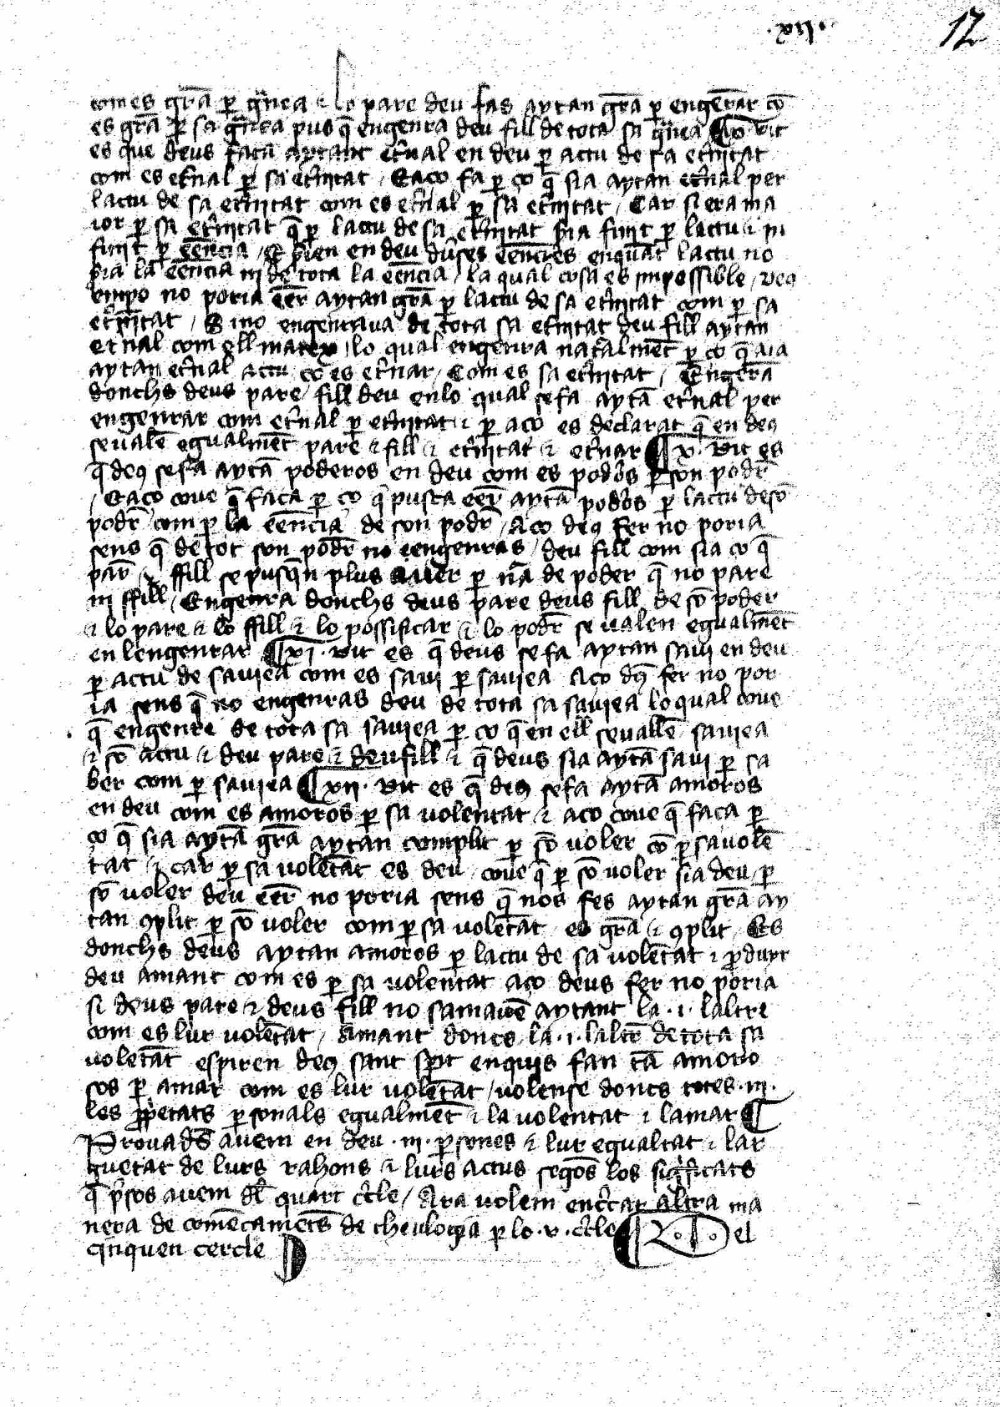 12
com es grā p gñea ⁊ lo pare deu fas aytan grā p engēr̄ar cō
es grā p sa gñea pus q̄ engenra deu fill de tota sa gñea ¶ dit
es que deus faca aytant et̄nal en deu p actu de sa et̄nitat
com es et̄nal p sa et̄nitat / E aco fa p co q̄ sia aytan et̄nal per
lactu de sa et̄nitat com es et̄nal p sa et̄nitat / Car si era ma
ior p sa et̄nitat q̄ p lactu de sa et̄nitat sia finit p lactu ⁊ in
finit p eēncia / en deu diuses eēncies enquāt lactu no
sia la eēncia ni de tota la eēncia / la qual cosa es impossible / deꝯ
empo no poria eēr aytan grā p lactu de sa et̄nitat com p sa
et̄nitat / Si no engenraua de tota sa et̄nitat deu fill aytan
et̄nal com ell matex / lo qual engenra nat̄alment p co q̄ aia
aytan et̄nal actu / co es et̄nar / Com es sa et̄nitat / Engērā
donchs deus pare / fill deu en lo qual se fa aytā et̄nal per
engenrar com et̄nal p et̄nitat ⁊ p aco es declarat q̄ en deꝯ
se ualē egualmēt pare ⁊ fill ⁊ et̄nitat ⁊ et̄nar ¶ x. dit es
q̄ deꝯ se fa aytā poderos en deu com es podōs p son podr̄
/ E aco coue q̄ faca p co q̄ pusca eēr aytā podōs p lactu de sō
podr̄ com p la eēncia de son podr̄ / Aco deꝯ fer no poria
sens q̄ de tot son podr̄ no eengenras / deu fill com sia co q̄
par̄ ⁊ ffill se pusq̄n plus auer p nā de poder q̄ no pare
ni ffill / Engenra donchs deus pare deus fill de sō poder
⁊ lo pare ⁊ lo ffill ⁊ lo possificar ⁊ lo podr̄ se ualen egualmēt
en lengenrar ¶ xi. dit es q̄ deus se fa aytan saui en deu
p actu de sauiea com es saui p sauiea Aco dꝯ fer no por
ia sens q̄ no engenras deu de tota sa sauiea lo qual coue
q̄ engenre de tota sa sauiea p co q̄ en ell se uallē sauiea
⁊ sō actu ⁊ deu pare ⁊ deu fill ⁊ q̄ deus sia aytā saui p sa
ber com p sauiea ¶ xii. dit es q̄ deꝯ se fa aytā amoros
en deu com es amoros p sa volentat ⁊ aco coue q̄ faca p
co q̄ sia aytā grā aytan complit p sō voler cō p sa volē
tat / ⁊ car p sa volētat es deu / coue q̄ p sō voler sia deu / p
sō voler deu eēr no poria sens q̄ nos fes aytan grā ay
tan ꝯplit p sō voler com p sa volētat / es grā ⁊ ꝯplit / Es
donchs deus aytan amoros p lactu de sa volētat ⁊ pduyt
deu amant com es p sa volentat aço deus fer no poria
si deus pare ⁊ deus fill no samauē aytant la .i. laltre
com es lur volētat / Amant doncs la .i. laltr̄ de tota sa
volētat espiren deꝯ sant spt enquis fan tā amoro
sos p amar com es lur volētat / volense doncs totes .iii.
les ppetats psonals egualmēt ⁊ la volentat ⁊ lamar ¶
Prouades auem en deu .iii. psones ⁊ lur egualtat ⁊ lar
guetat de lurs rahons ⁊ lurs actus segōs los sigficats
q̄ psos auem dl̄ quart cc̄le / Ara volem encc̄ar altra ma
nera de comēcamēts de theulogia p lo .v. cc̄le ¶ Del
cinquen cercle